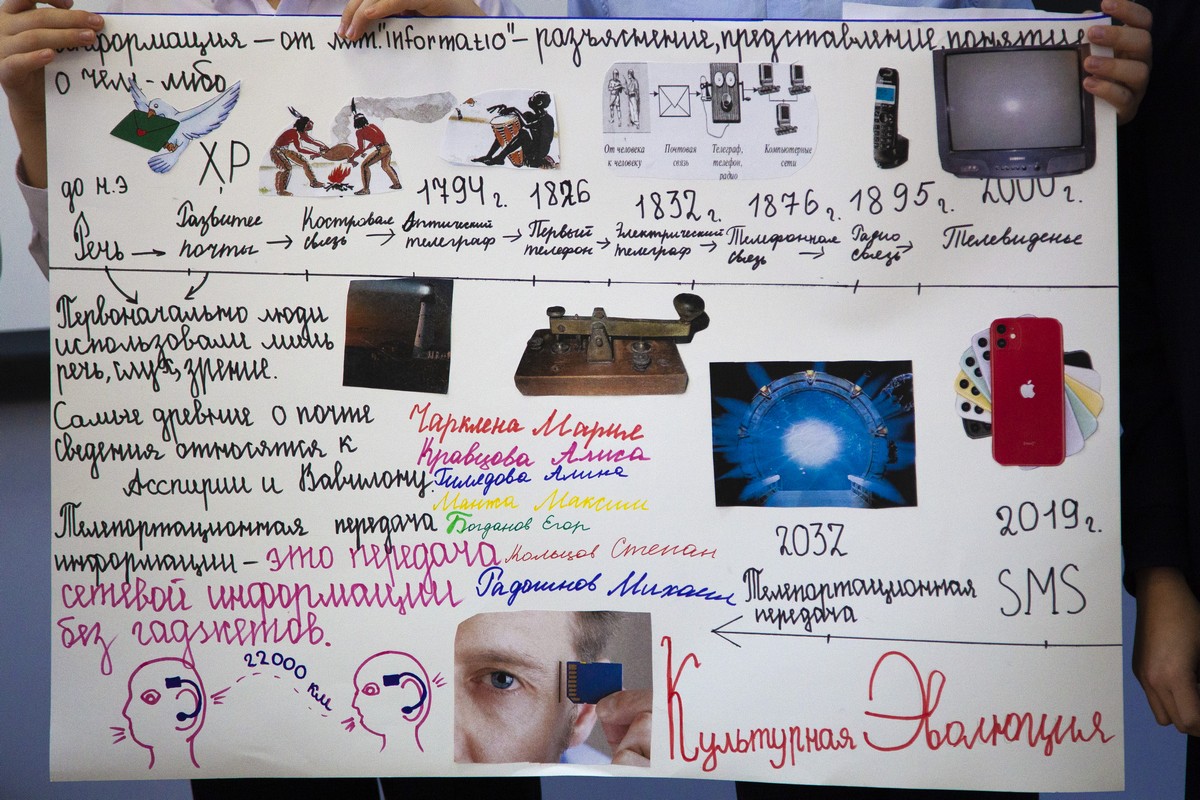 Информация – от лат. "informatio" – разъяснение, представление, понятие
о чем-либо
От человека к человеку
Почтовая связь
Телеграф, телефон, радио
Компьютерные сети
до н.э
Х,Р
1794 г.
1826
1832 г.
1876 г.
1895 г.
2000 г.
Речь
Развитее почты
Костровая связь
Оптический телеграф
Первый телефон
Электрический телеграф
Телефонная связь
Радио связь
Телевиденье
Первоначально люди
использовали лишь
речь, слух, зрение.
Самые древние о почте
сведения относятся к
Асспирии и Вавилону.
Телепортационная передача
информации – это передача
сетевой информации
без гаджетов.
Мария
Кравцова Алиса
Алина
Манжа Максим
Богданов Егор
Кольцов Степан
Михаил
2032
Телепортационная
передача
2019 г.
SMS
22000 км
Культурная Эволюция